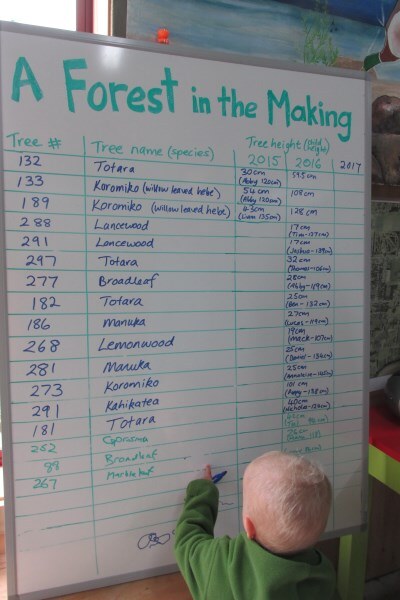 A Forest in the Making
Tree # Tree name (species) Tree height (child height)
2015 2016 2017
132 Totara 30cm (Abby 120cm)
133 Koromiko (willow leaved hebe) 54cm (Abby 120cm) 108cm
189 Koromiko (willow leaved hebe) 43cm (Liam 135cm) 128cm
288 Lancewood 17cm
291 Lancewood 17cm
297 Totara 32cm
277 Broadleaf 28cm (Abby-119cm)
182 Totara 25cm (Ben-132cm)
186 Manuka 27cm (Lucas-119cm)
268 Lemonwood 19cm (Mack-107cm)
281 Manuka 25cm
273 Koromiko 25cm
291 Kahikatea 101cm
181 Totara 40cm
262 Coprosma
88 Broadleaf
267 Marbleleaf